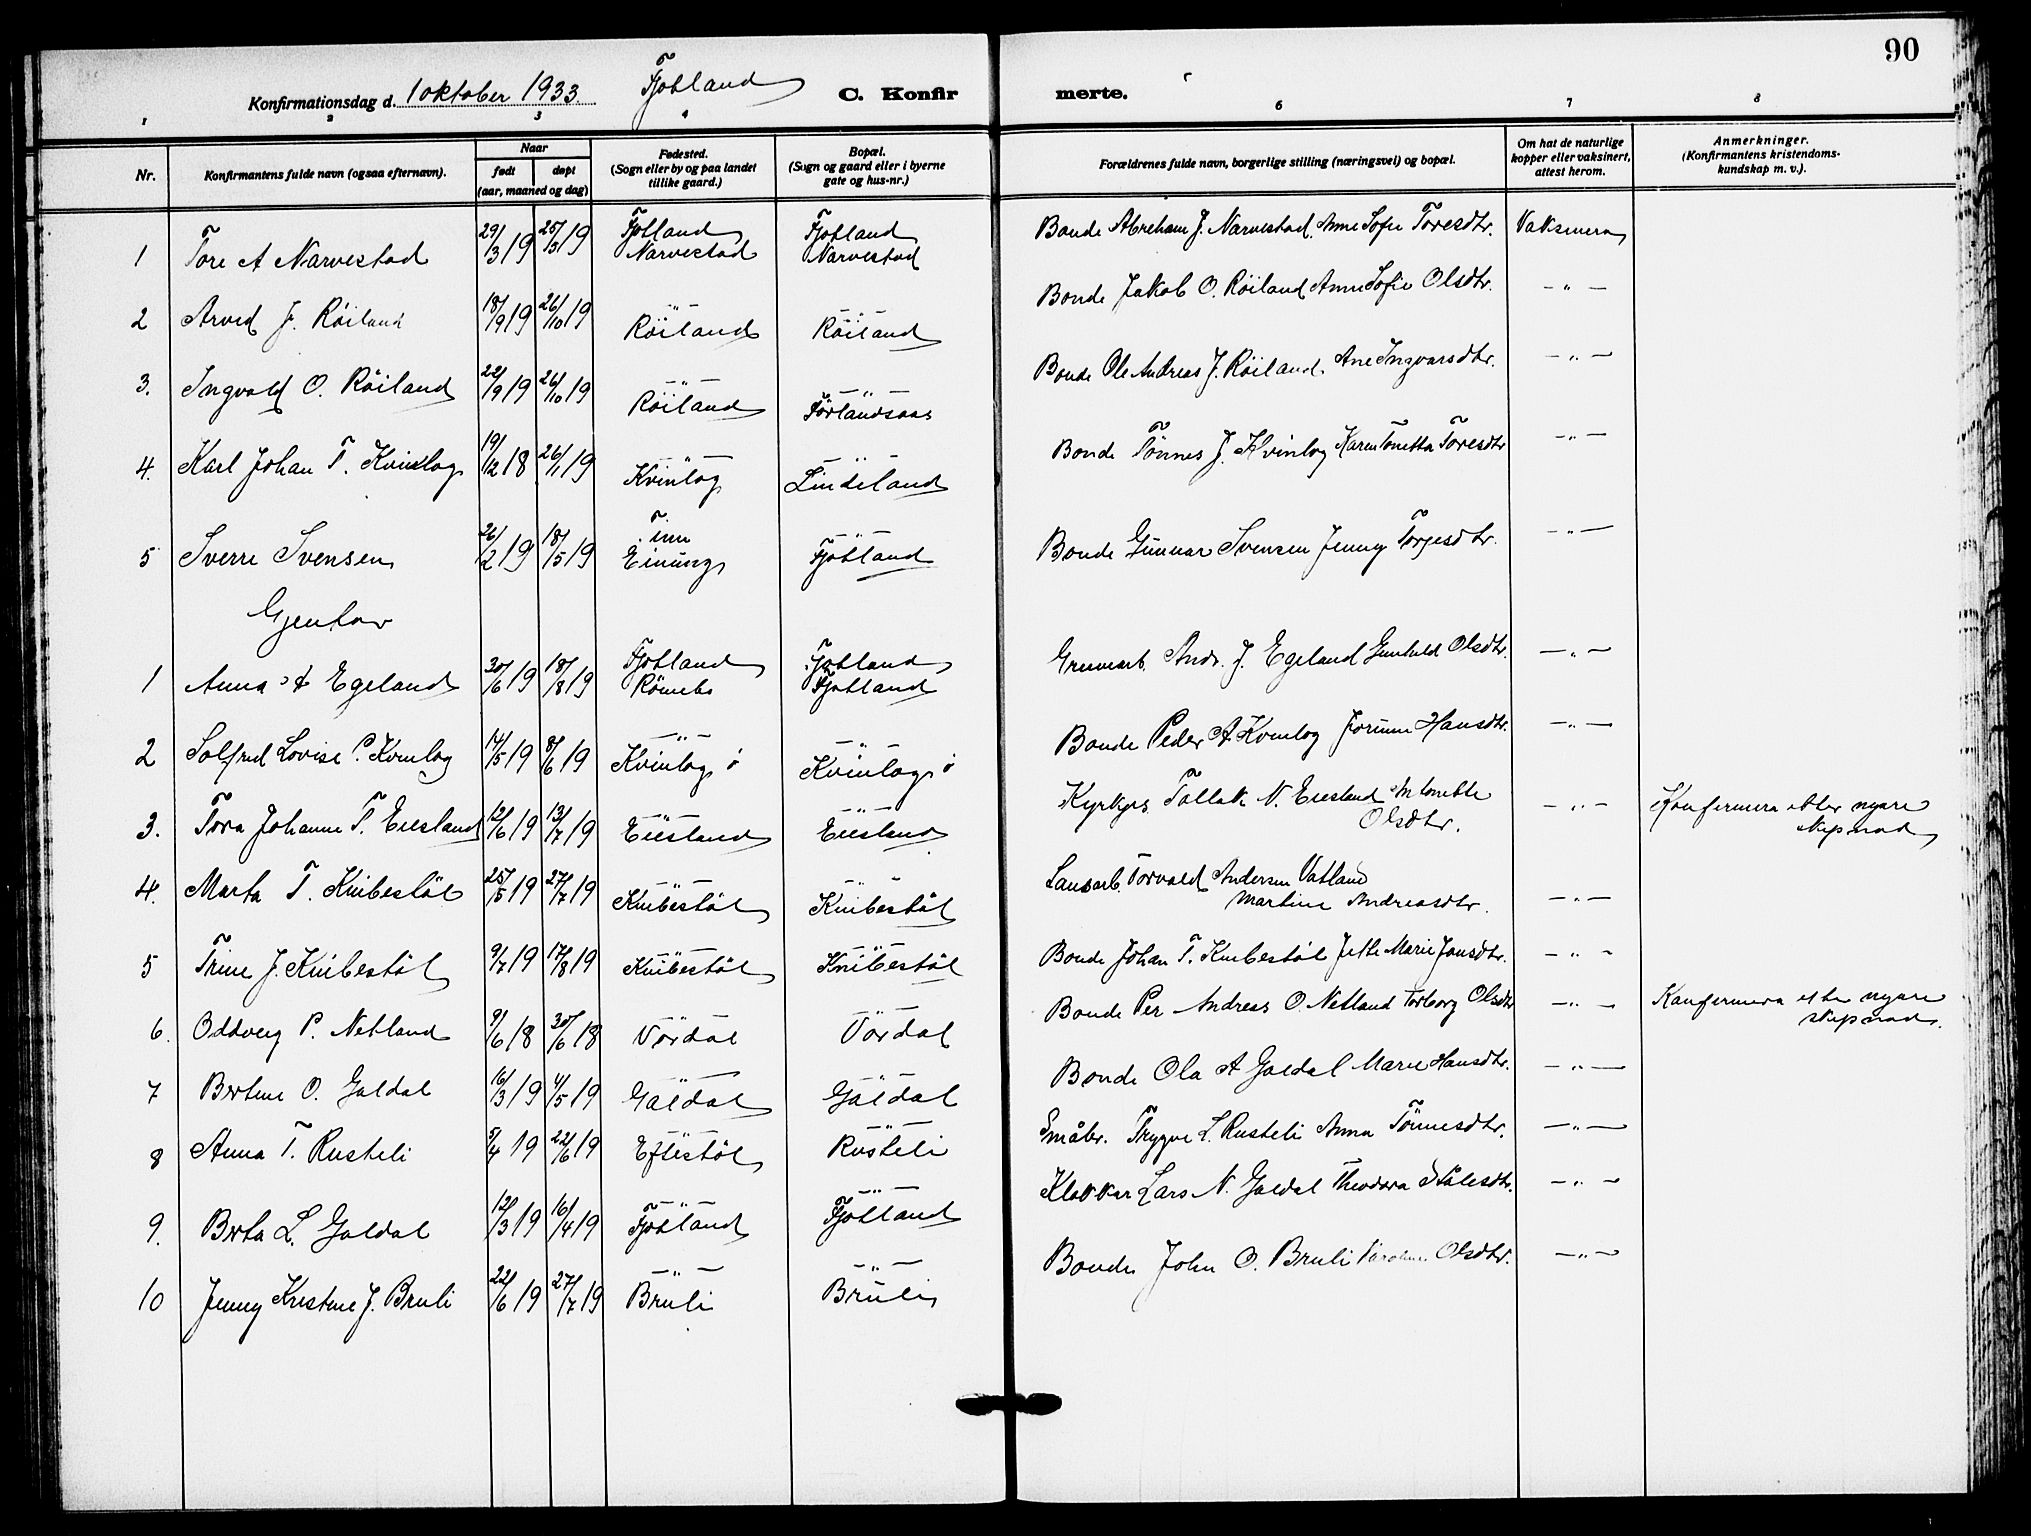 90
Konfirmationsdag d. 1 oktober 1933. Fjotland C. Konfirmerte.
1 2 3 4 6 7 8
Nr. Konfirmantens fulde navn (ogsaa efternavn). Naar født døpt (aar, maaned og dag) Fødested. (Sogn eller by og paa landet tillike gaard.) Bopæl. (Sogn og gaard eller i byerne gate og hus-nr.) Forældrenes fulde navn, borgerlige stilling (næringsvei) og bopæl. Om hat de naturlige kopper eller vaksinert, attest herom. Anmerkninger. (Konfirmantens kristendoms-kundskap m. v.).
1 Tore A Narvestad 29/3 19 25/3 19 Fjotland Narvestad Fjotland Narvestad Bonde Abreham J. Narvestad, Anne Sofie Toresdtr. Vaksinera
2 Arved J. Röiland 18/9 19 26/10 19 — " — Röiland — " — Röiland Bonde Jakob O. Röiland Anne Sofie Olsdtr. — " —
3. Ingvald O. Röiland 22/9 19 26/10 19 — " — Röiland — " — Förlandsaas Bonde Ole Andreas J. Röiland. Ane Ingvarsdtr. — " —
4. Karl Johan T. Kvinlog 19/12 18 26/1 19 — " — Kvinlog — " — Lindeland Bonde Tönnes J. Kvinlog Karen Tonetta Toresdtr — " —
5 Sverre Svensen 26/2 19 18/5 19 Tinn Einung — " — Fjotland Bonde Gunnar Svensen Jenny Torjesdtr. — " —
Gjentor
1 Anna A Egeland 30/6 19 18/8 19 Fjotland Römebo Fjotland Fjotland Gruvearb. Andr. J. Egeland Gunhild Olsdtr. — " —
2 Solfrid Lovise P. Kvinlog 17/5 19 8/6 19 — " — Kvinlog ö — " — Kvinlog ö Bonde Peder A Kvinlog Jorunn Hansdtr. — " —
3. Tora Johanne T. Eiesland 12/6 19 13/7 19 — " — Eiesland — " — Eiesland Kyrkjes Tallak N. Eiesland Antonette Olsdtr. — " — Konfermera etter nyare skipnad
4. Marta T. Knibestöl 25/5 19 27/7 19 — " — Knibestöl — " — Knibestöl Lausarb. Torvald Andersen Vatland Martine Andreasdtr. — " —
5 Trine J. Knibestöl 9/7 19 17/8 19 — " — Knibestöl — " — Knibestöl Bonde Johan T. Knibestöl Jette Marie Jonsdtr. — " —
6. Oddveig P. Netland 9/6 18 30/6 18 — " — Vordal — " — Vordal Bonde Per Andreas O. Netland Torborg Olsdtr — " — Konfermera etter nyare skipnad.
7 Bertine O. Galdal 16/3 19 4/5 19 — " — Galdal — " — Galdal Bonde Ola A Galdal Marie Hansdtr. — " —
8 Anna T. Rusteli 5/4 19 22/6 19 — " — Eftestöl — " — Rusteli Småbr. Trygve L. Rusteli Anna Tönnesdtr. — " —
9. Berta L. Galdal 12/3 19 16/4 19 — " — Fjotland — " — Fjotland Klokkar Lars N. Galdal Theodora Stålesdtr. — " —
10 Jenny Kristine J. Bruli 22/6 19 27/7 19 — " — Bruli — " — Bruli Bonde John O. Bruli Karoline Olsdtr. — " —